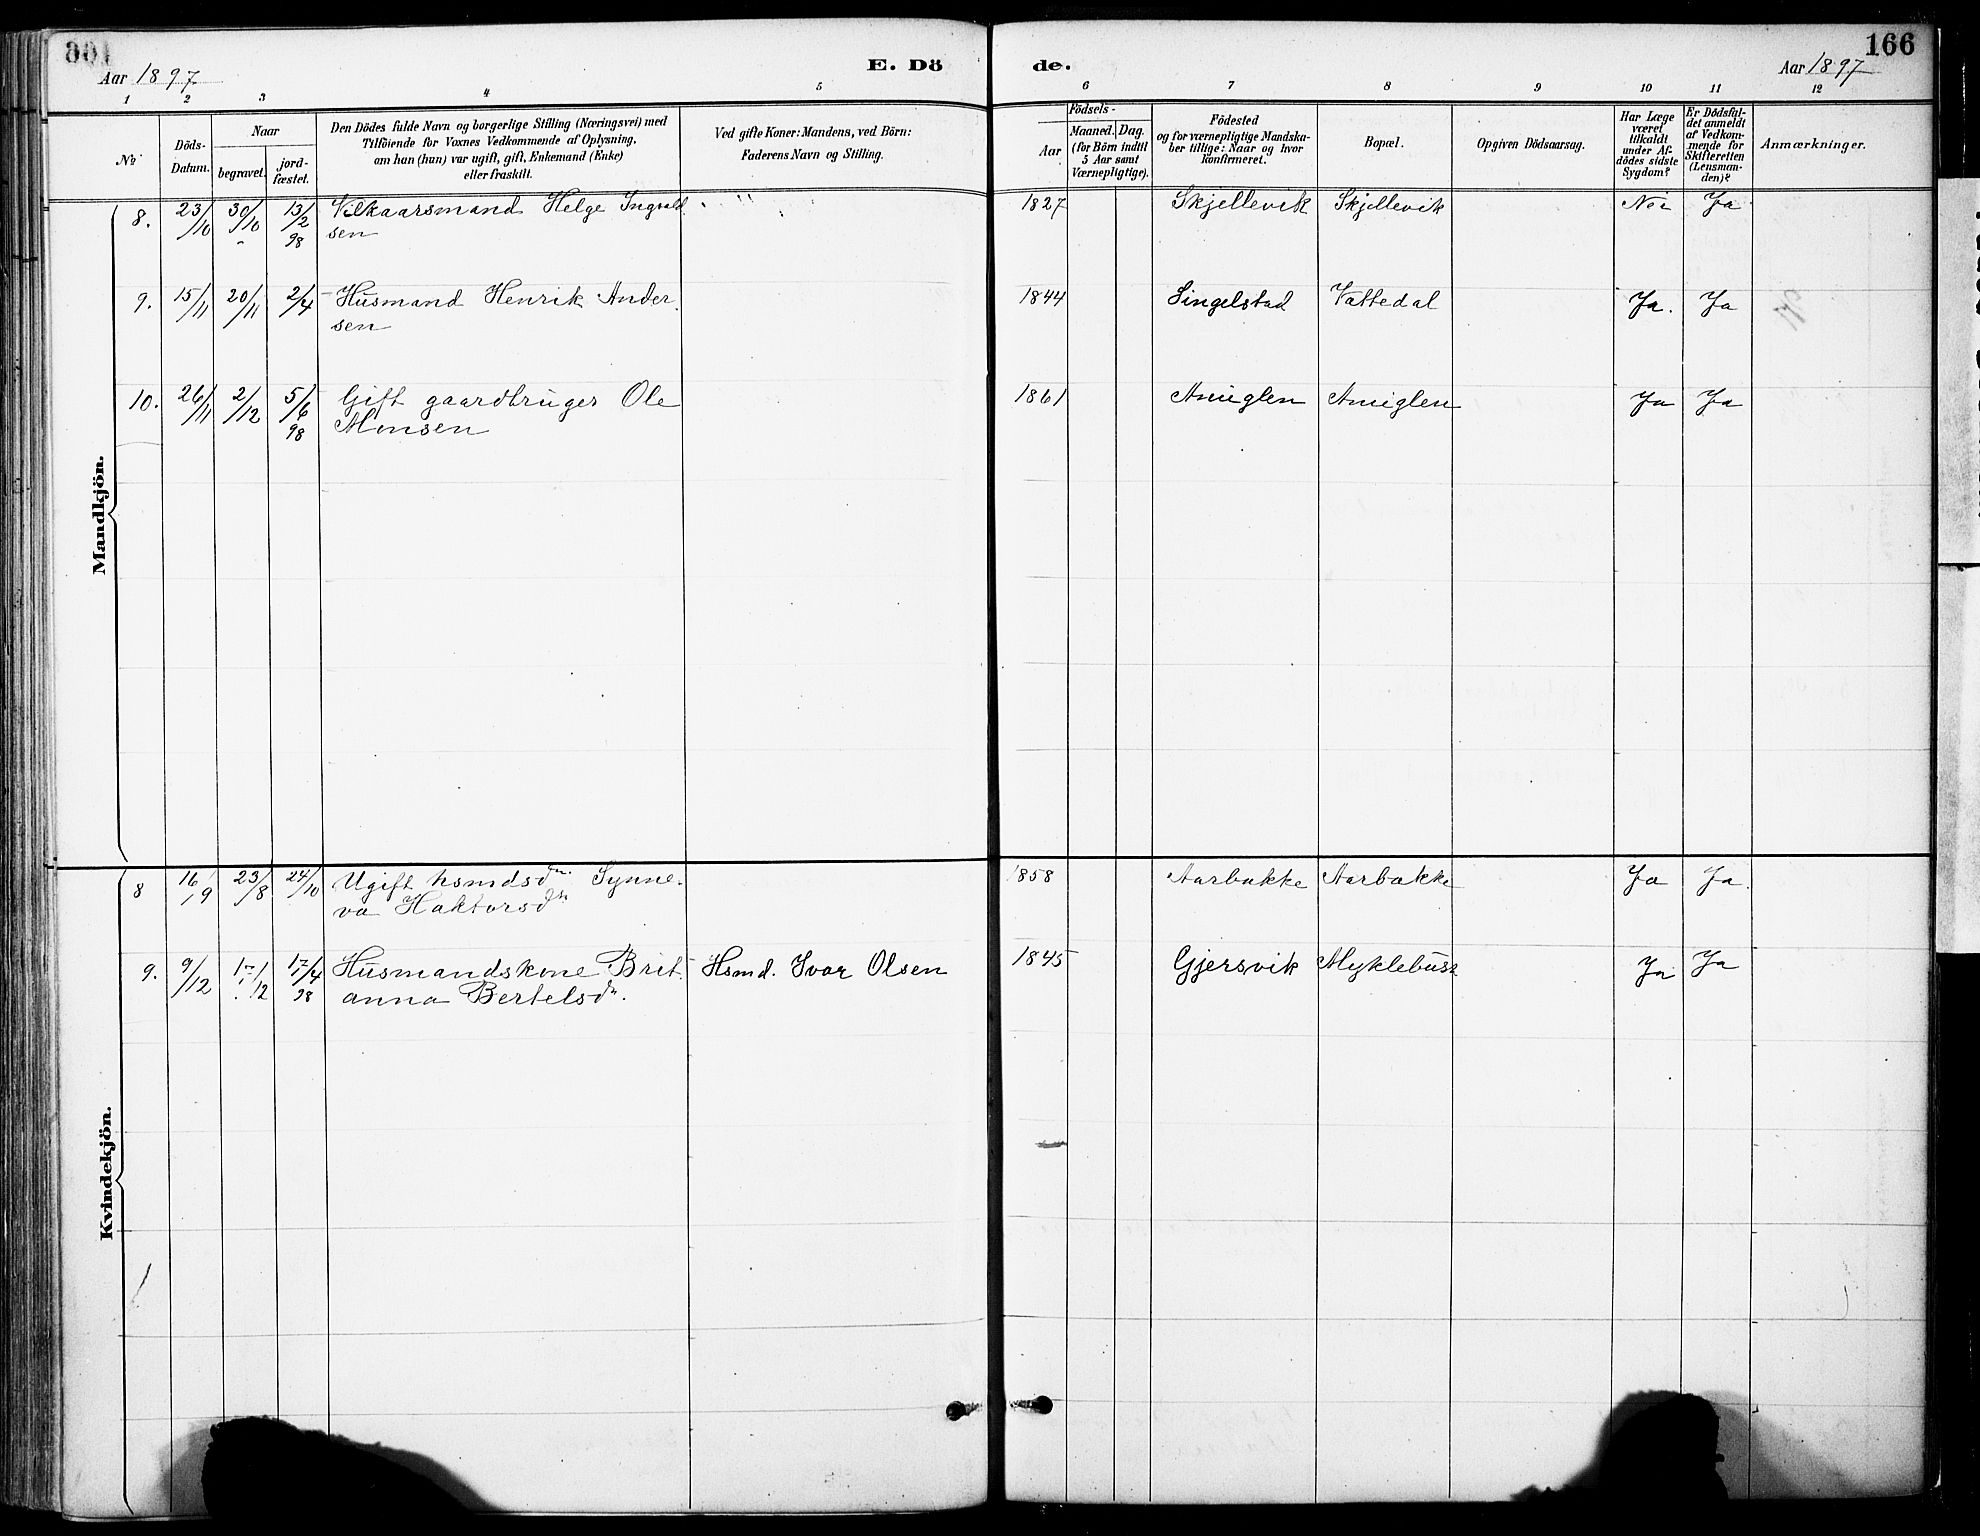 166
Aar 1897
E. Dö
de.
Aar 1897
1 2 3 4 5 6 7 8 9 10 11 12
No
Döds-
Datum.
Naar
begravet.
jord-
fæstet.
Den Dödes fulde Navn og borgerlige Stilling (Næringsvei) med
Tilföiende for Voxnes Vedkommende af Oplysning,
om han (hun) var ugift, gift, Enkemand (Enke)
eller fraskilt.
Ved gifte Koner: Mandens, ved Börn:
Faderens Navn og Stilling.
Födsels-
Aar
Maaned. Dag.
(for Börn indtil
5 Aar samt
Værnepligtige).
Födested
og for værnepligtige Mandska-
ber tillige: Naar og hvor
konfirmeret.
Bopæl.
Opgiven Dödsaarsag.
Har Læge
været
tilkaldt
under Af-
dödes sidste
Sygdom?
Er Dödsfal-
det anmeldt
af Vedkom-
mende for
Skifteretten
(Lensman-
den)?
Anmærkninger.
Mandkjön.
8. 23/10 30/10 13/2 98 Vilkaarsmand Helge Ingvald 1827 Skjellevik Skjellevik Nei Ja
sen
9. 15/11 20/11 2/4 Husmand Henrik Ander 1844 Singelstad Vattedal Ja. Ja
sen
10. 26/11 2/12 5/6 98 Gift gaardbruger Ole 1861 Amuglen Amuglen Ja Ja
Monsen
Kvindekjön.
8 16/9 23/8 24/10 Ugift hsmdsdtr. Synne- 1858 Aarbakke Aarbakke Ja Ja.
va Haktorsdtr
9. 9/12 17/12 17/4 98 Husmandskone Brit Hsmd. Ivar Olsen 1845 Gjersvik Myklebust Ja Ja
anna Bertelsdtr.